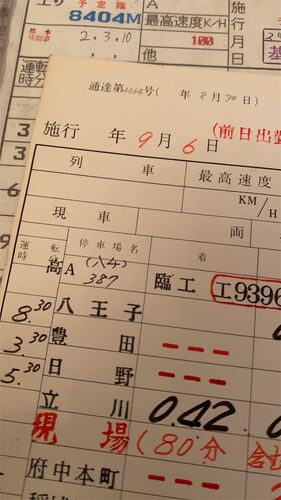 予定臨
8404M
最高速度K/H
施行
月
日
基本
2.3.10
100
他
運転
時分
通達第4464号( 年8月30日)
施行 年9月6日 (前日出
列車 最高速度
KM/H
現車 両
運転
時分
停車場名
着
高A
(八今)
387
臨工 工9396
8.30 八王子
3.30 豊田 ---
5.30 日野 ---
立川 0.42
現場(80分
府中本町 ---